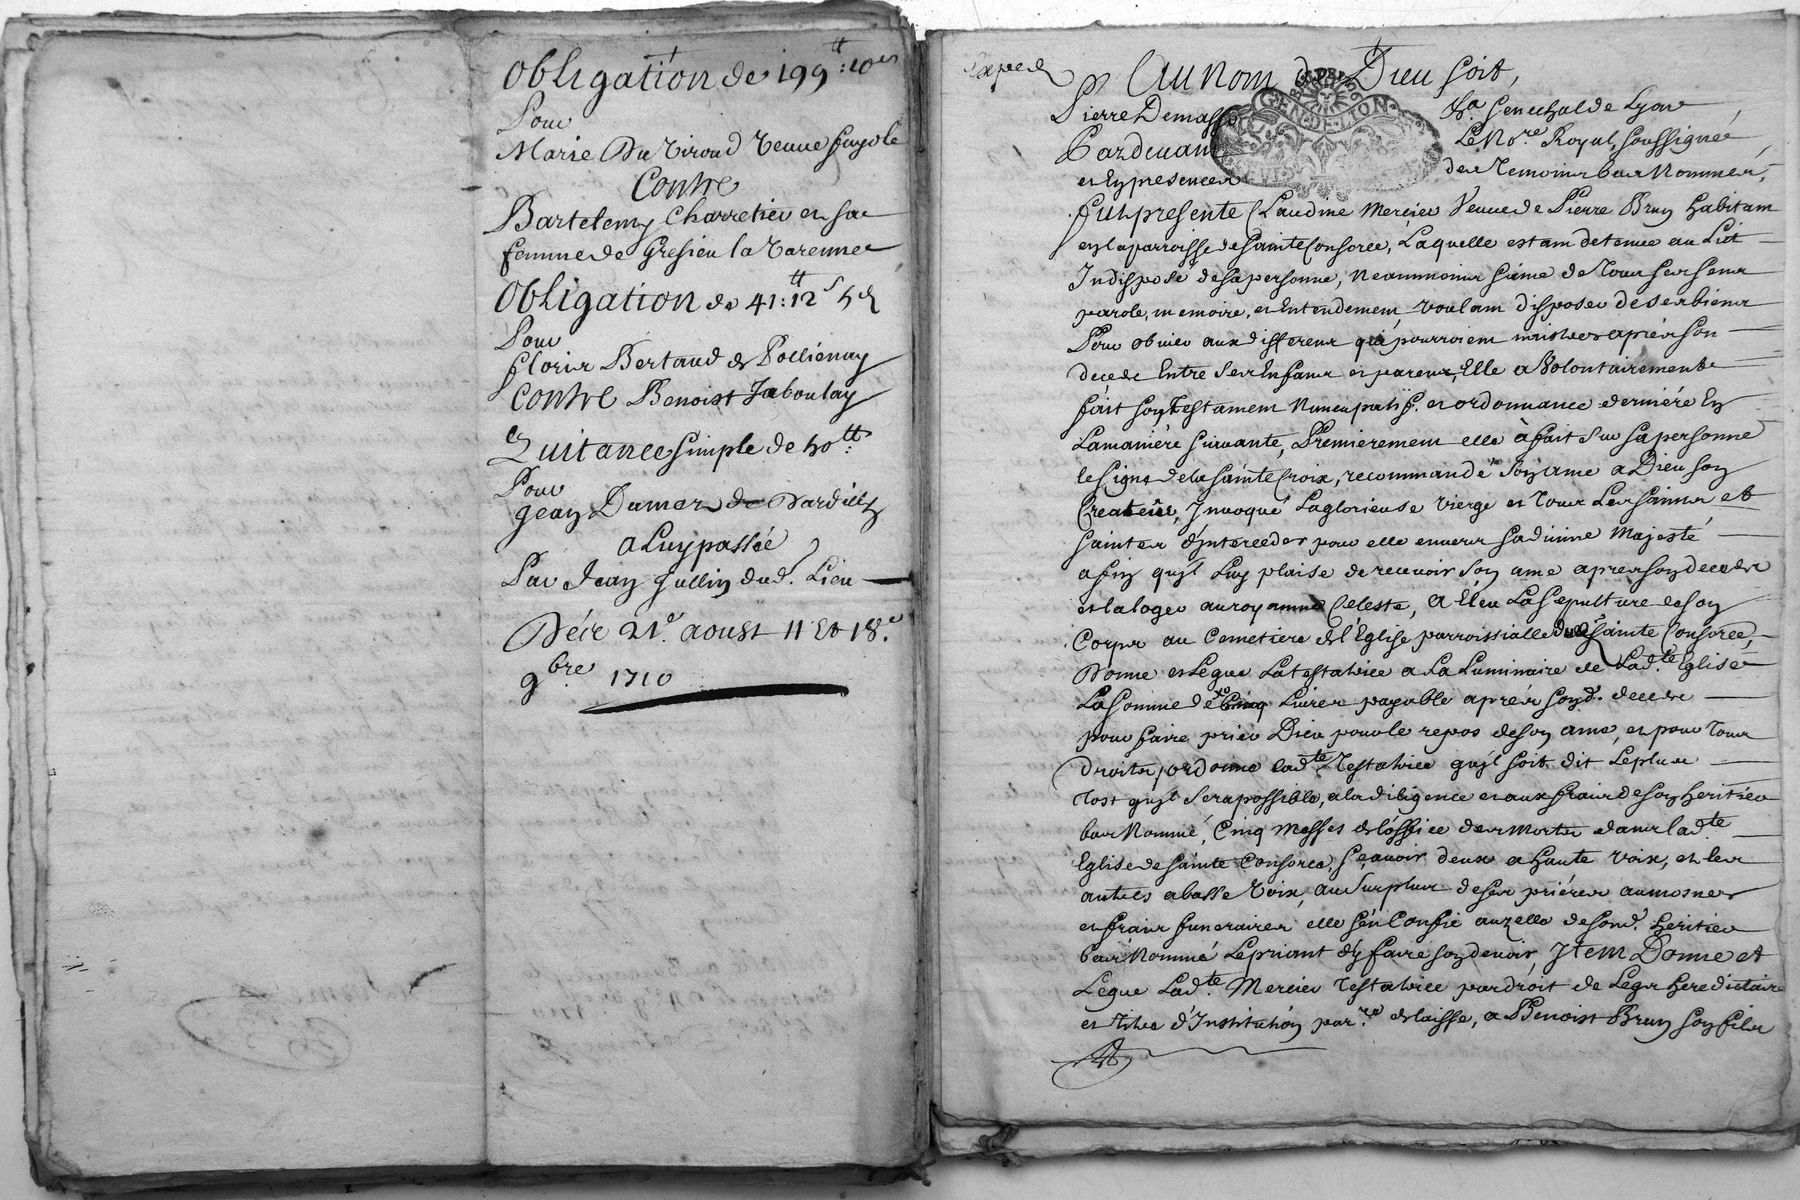 Obligation de 199 tt: 10 s
Pour
Marie Du Tiroud veuve fayole
Contre
Bartelemy Charretier et sa
femme de Gresieu la Varenne
Obligation de 41 tt: 12 s 5 d
Pour
Floris Bertaud de Pollienay
Contre Benoist Jaboulay
Quitance simple de 50 tt:
Pour
Jean Dumas de Dardilly
a Luy passée
Par Jean Gullin dud. Lieu
Décé 21e aoust 11 Et 18e
9bre 1710
Exped
Au Nom de Dieu soit,
Pierre Demasso
Sen.al de Lyon
Pardevant
Le No.re Royal, soussigné
et En presence
des Temoins bas Nommés,
fut presente Claudine Mercier Veuve de Pierre Brun habitant
en la parroisse de Sainte Consorce, Laquelle estant detenue au Lict
Indisposé de sa personne, Neanmoins saine de tous ses sens
parole, memoire, et Entendement voulant disposer de ses biens
Pour obvier aux differens qui pourroient naistre apres son
decede Entre Ses Enfans et parens, Elle a Volontairement
fait son Testament Nuncupatif et ordonnance derniére En
La maniére suivante, Premierement elle à fait Sur sa personne
le Signe de la Sainte Croix, recommandé son ame a Dieu son
Createur, Invoqué La glorieuse vierge et tous Les saints et
saintes d'Interceder pour elle envers sa divine Majesté
afin qu'il Luy plaise de recevoir Son ame apres son decede
et la loger au royaume Celeste, a Eleu La Sepulture de son
Corps au Cemetiere de l'Eglise parroissialle dud. Sainte Consorce,
Donne et Legue La testatrice a La Luminaire de Lad.te Eglise
La somme de Cinq Livres payable aprés sond. decede
pour faire prier Dieu pour le repos de son ame, et pour tous
droits, ordonne lad.te Testatrice qu'il soit dit Le plus
tost qu'il Sera possible, a la diligence et aux frais de son heritier
bas Nommé, Cinq Messes de l'office des Morts dans lad.te
Eglise de Sainte Consorce, Sçavoir deux a haute voix, et les
autres a basse voix, au Surplus de ses priéres aumosnes
et frais funeraires elle s'en Confie au zelle de sond. heritier
bas Nommé Le priant d'y faire son devoir, Item Donne et
Legue Lad.te Mercier Testatrice par droit de Legs hereditaire
et titre d'Institution par.re delaisse, a Benoist Brun son fils